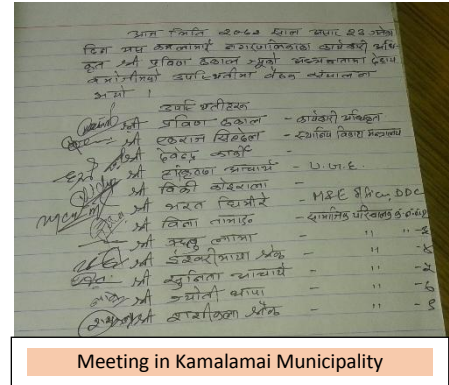 आज मिति २०७३ साल असार २३ गतेका
दिन यस कमलामाई नगरपालिकाका कार्यकारी अधि-
कृत श्री प्रविण ढकाल ज्यूको अध्यक्षतामा देहाय
बमोजिमको उपस्थितीमा बैठक संचालन
भयो ।
उपस्थितीहरू
श्री प्रविण ढकाल - कार्यकारी अधिकृत
श्री एकराज सिग्देल - स्थानिय विकास मन्त्रालय
श्री देवेन्द्र कार्की -
श्री आचार्य - U.G.E.
श्री विकी कोइराला
श्री भरत घिमिरे - M&E officer, DDC
श्री विना तामाङ - सामाजिक परिचालक
श्री लामा - " " -३
श्री ईश्वरीमाया श्रेष्ठ - " " -४
श्री सुनिता आचार्य - " -५
श्री ज्योती थापा - " -६
श्री शशीकला श्रेष्ठ - " -९
Meeting in Kamalamai Municipality